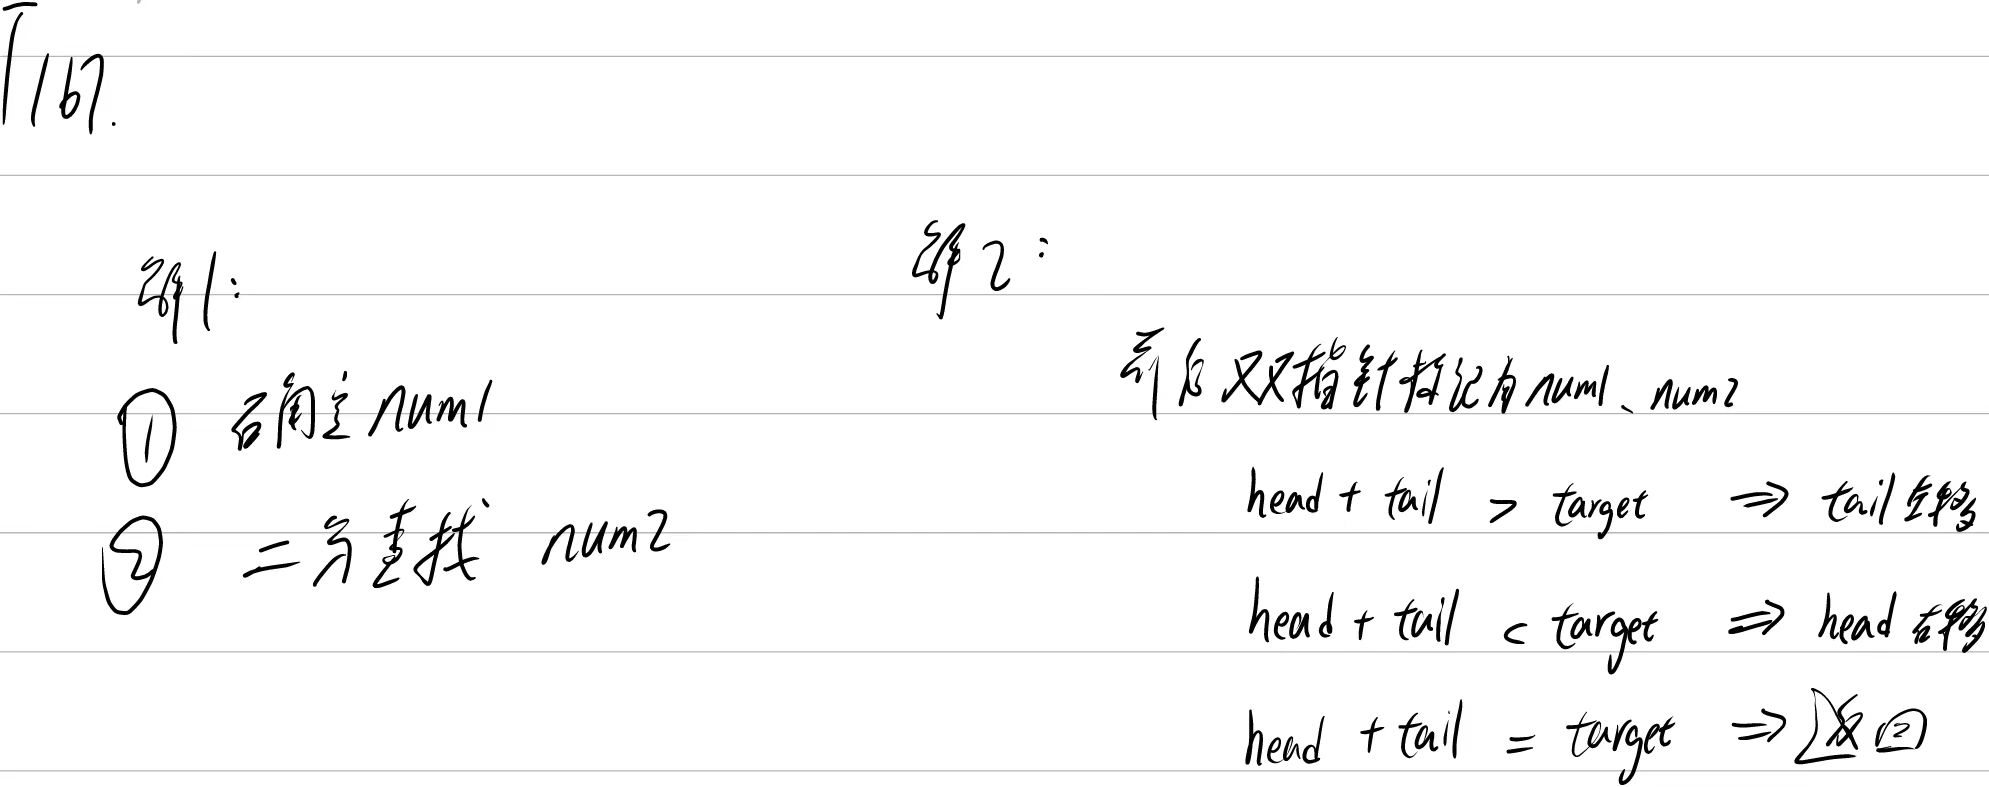 T167.
解1:
① 确定 num1
② 二分查找 num2
解2:
前后双指针标记 num1、num2
head + tail > target ⇒ tail 左移
head + tail < target ⇒ head 右移
head + tail = target ⇒ 返回